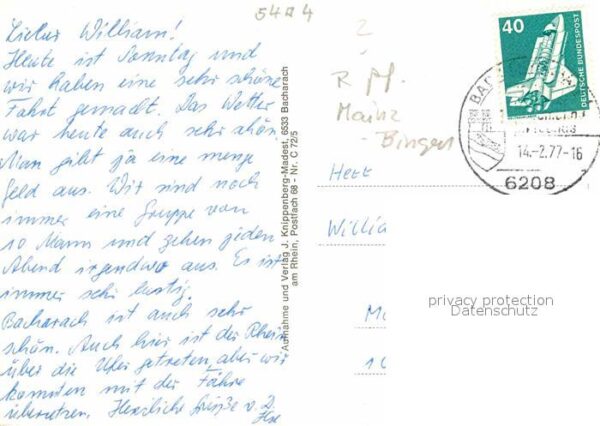 54 4
2
Lieber William!
Heute ist Sonntag und
wir haben eine sehr schöne
Fahrt gemacht. Das Wetter
war heute auch sehr schön.
Man gibt ja eine menge
Geld aus. Wir sind noch
immer eine Gruppe von
10 Mann und gehen jeden
Abend irgendwo aus. Es ist
immer sehr lustig.
Bacharach ist auch sehr
schön. Auch hier ist der Rhein
über die Ufer getreten, aber wir
konnten mit der Fähre
übersetzen. Herzliche Grüße v. D.
Ilse
Aufnahme und Verlag J. Knippenberg-Madest, 6533 Bacharach
am Rhein, Postfach 68 - Nr. C 72/5
R Pf.
Mainz
Bingen
40
DEUTSCHE BUNDESPOST
BAD
14.-2.77-16
6208
Herr
Willia
privacy protection
Datenschutz